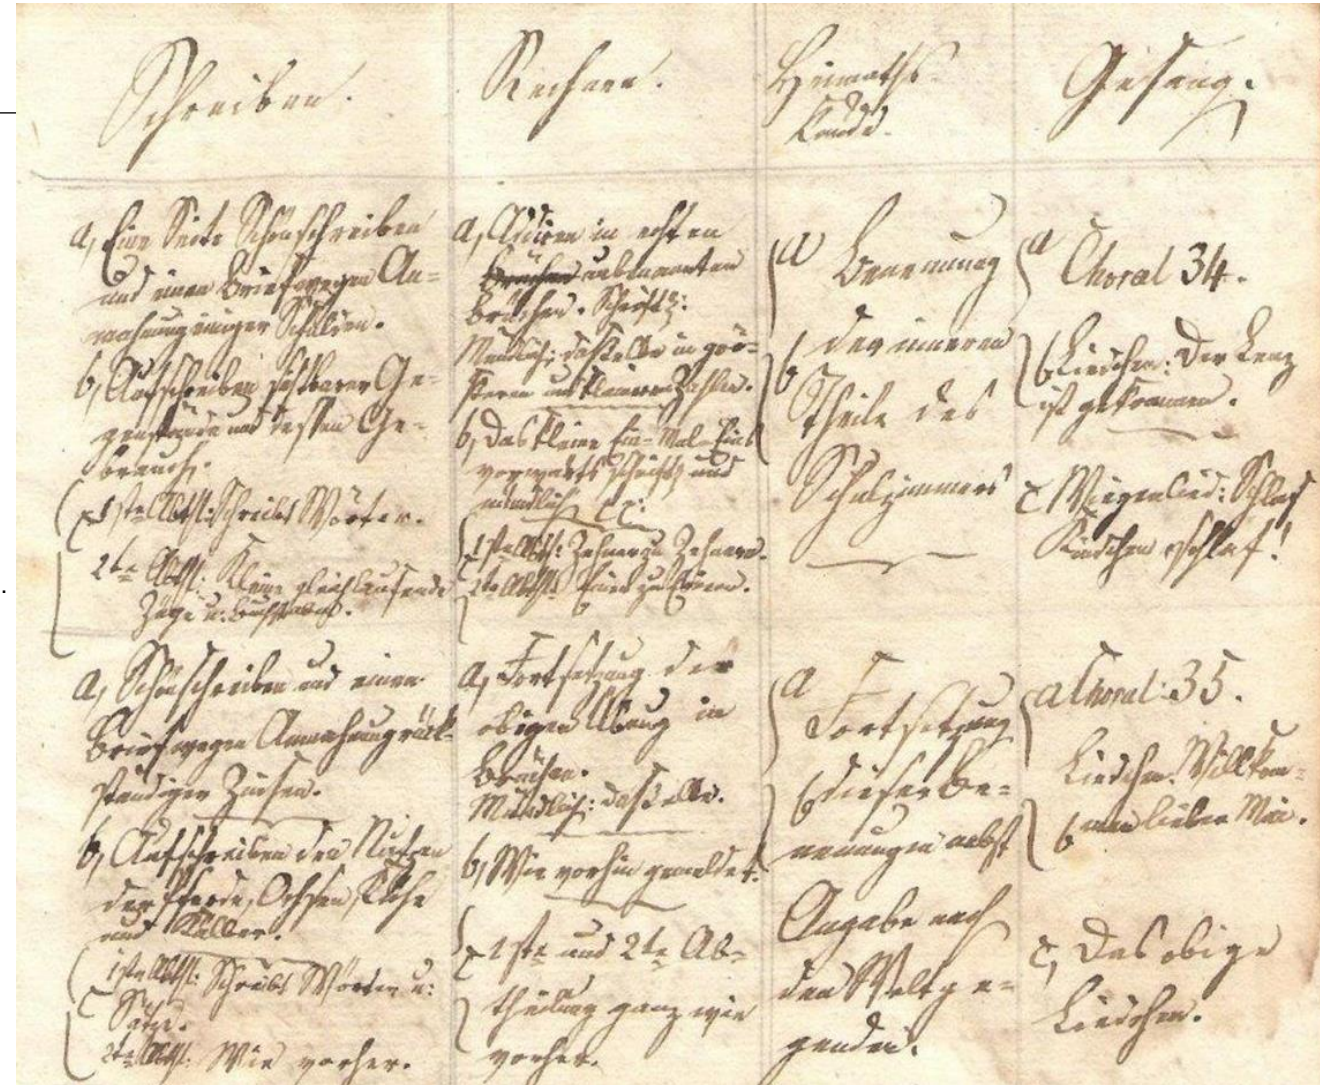 Schreiben.
Rechnen.
Heimaths
Kunde.
Gesang.
a, Eine Seite Schönschreiben
und einen Brief wegen An=
mahnung einiger Schulden.
b, Aufschreiben sichtbarer Ge=
genstände und dessen Ge=
brauch.
c 1ste Abthl: Schreibt Wörter.
2te Abthl: Kleine gleichlaufende
Züge u. Buchstaben.
a, Addiren in echten
Brüchen unbenannten
Brüchen. Schriftl:
Mündlich: dasselbe in grö=
ßeren und kleineren Zahlen.
b, Das kleine Ein=Mal=Eins
vorwärts schriftl und
mündlich
c 1ste Abthl: Zehner zu Zehnern.
2te Abthl: Einer zu Einern.
a Benennung
b der inneren
Theile des
Schulzimmers
a Choral 34.
b Liedchen: Der Lenz
ist gekommen.
c Wiegenlied: Schlaf
Kindchen schlaf!
a, Schönschreiben und einen
Brief wegen Anmahnung rück=
ständiger Zinsen.
b, Aufschreiben den Nutzen
der Pferde, Ochsen, Kühe
und Kälber.
c 1ste Abthl: Schreibt Wörter u:
Sätze.
2te Abthl: Wie vorher.
a, Fortsetzung der
obigen Übung in
Brüchen.
Mündlich: dasselbe.
b, Wie vorhin gemeldet.
c 1ste und 2te Ab=
theilung ganz wie
vorher.
a Fortsetzung
b dieser Be=
nennungen nebst
Angabe nach
den Weltge=
genden.
a Choral: 35.
Liedchen: Willkom=
b men lieber Mai.
c, Das obige
Liedchen.